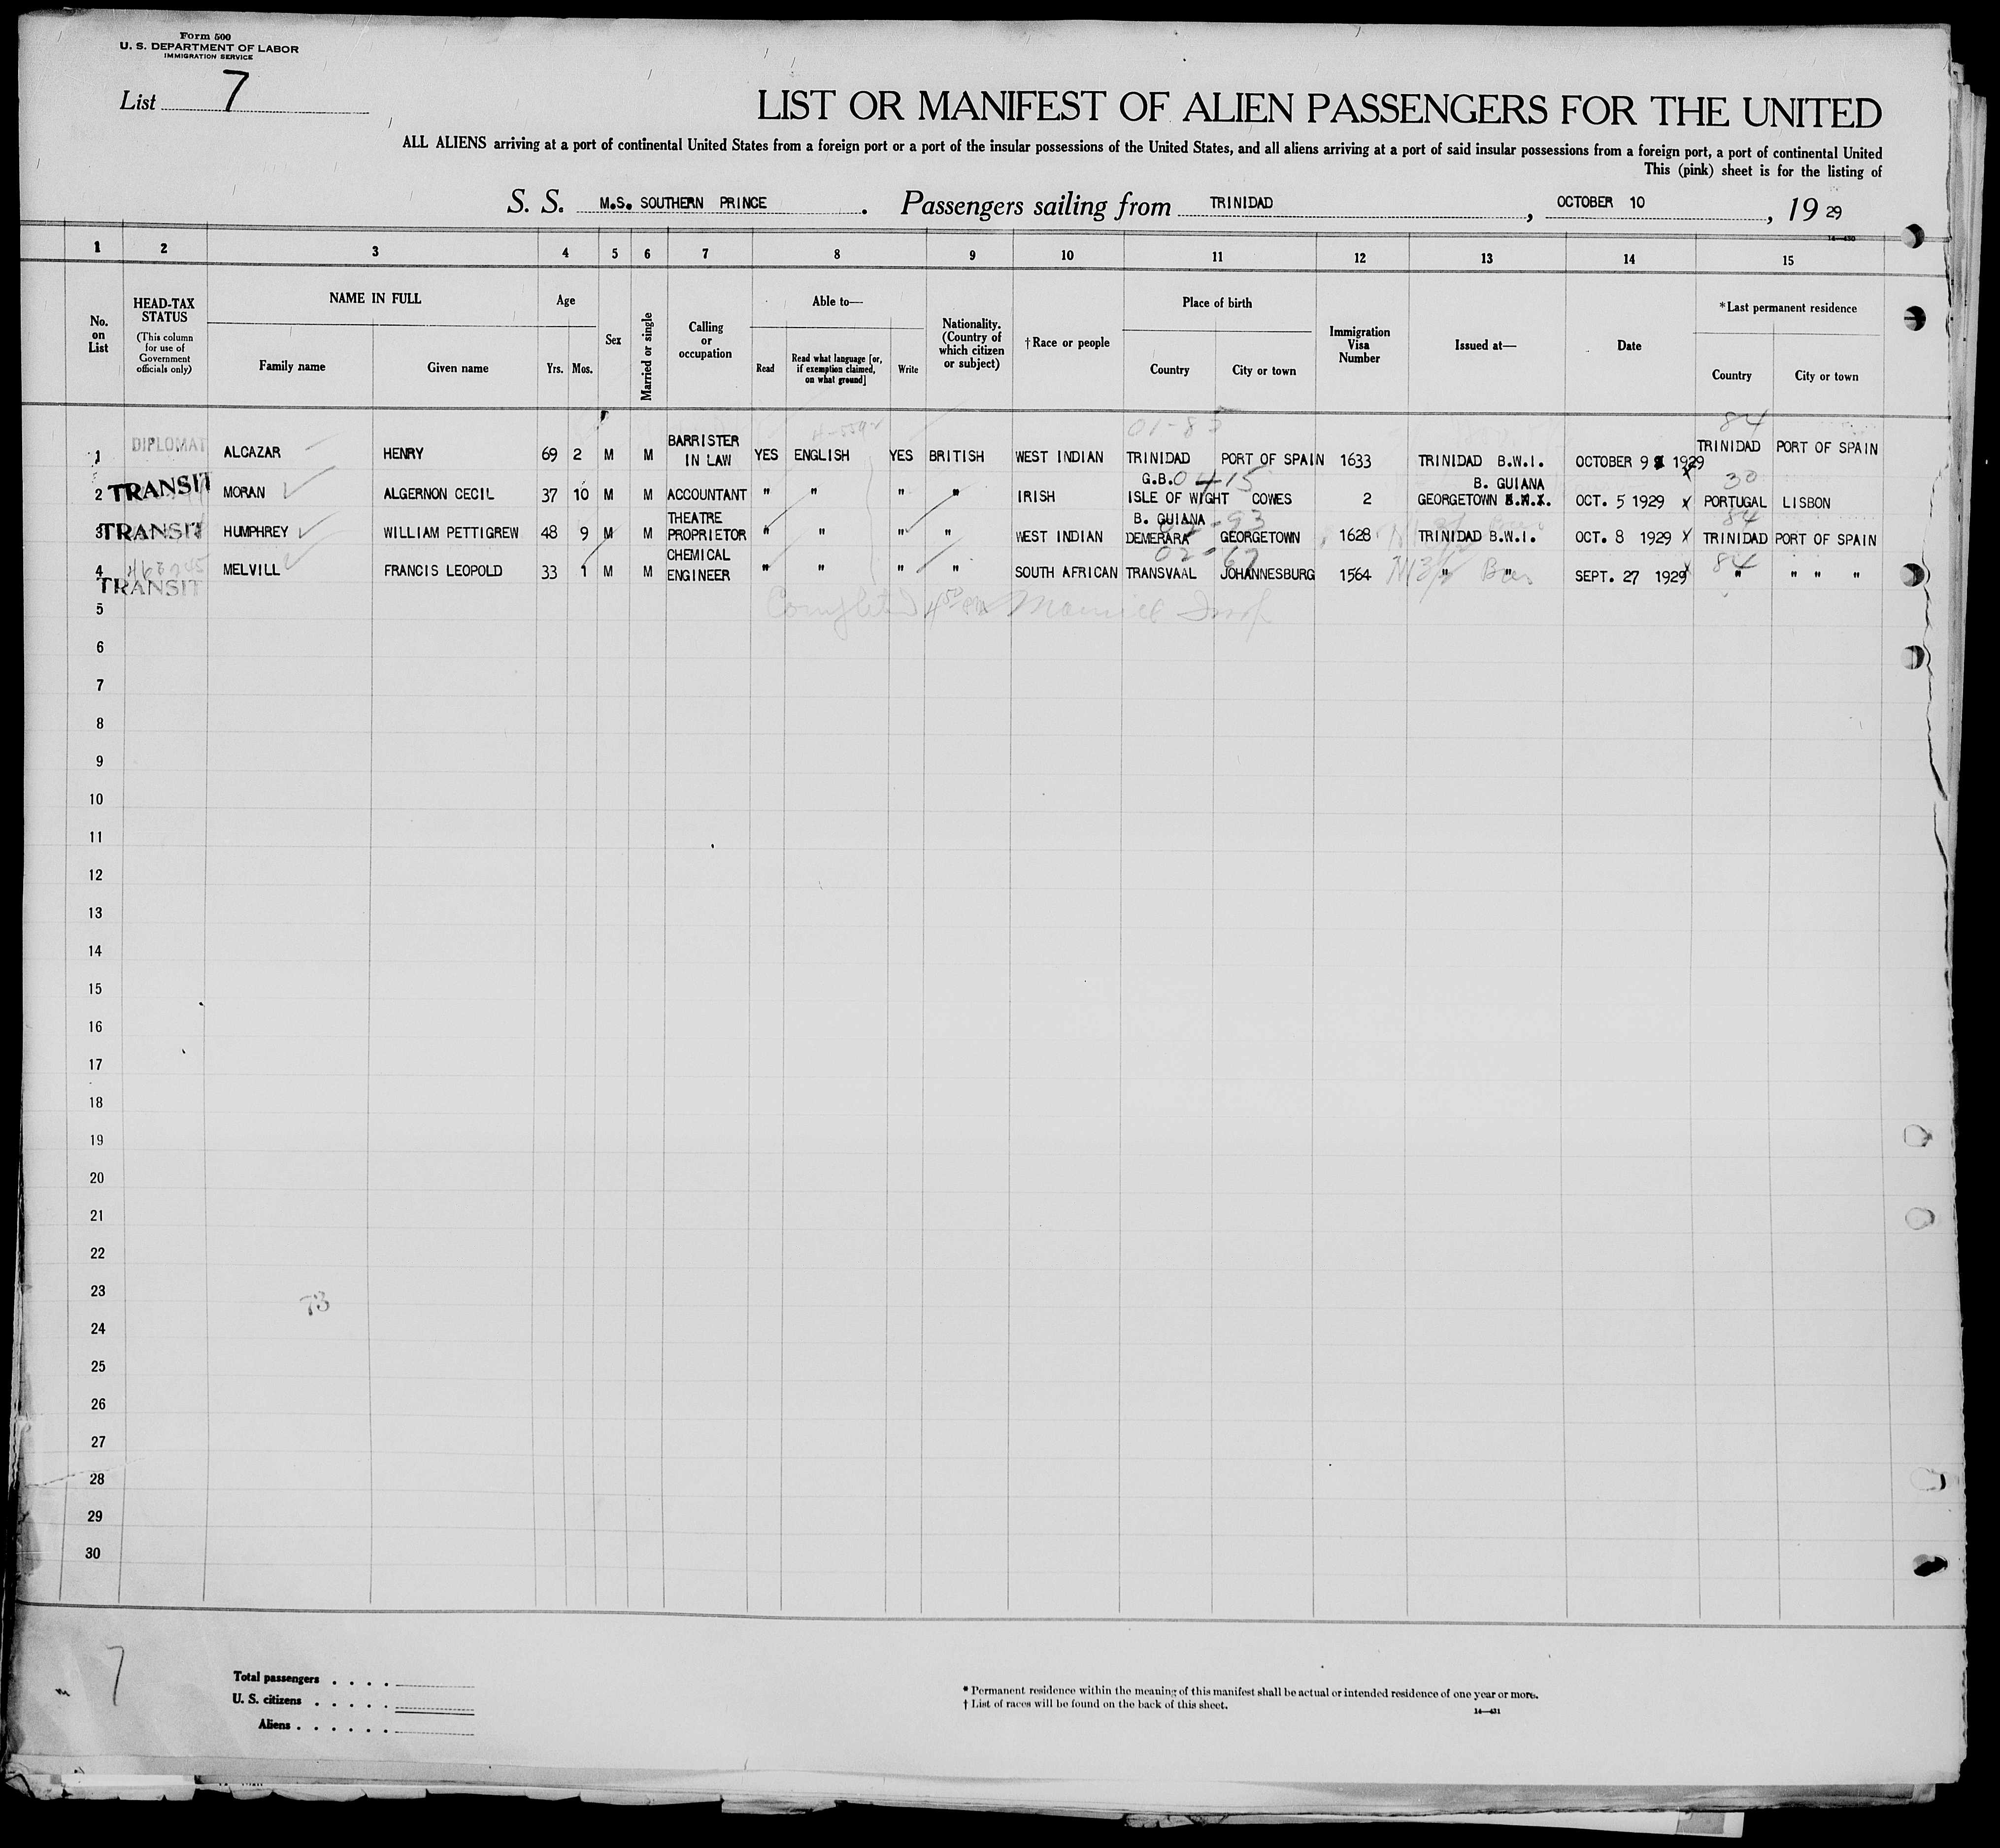 Form 500
U. S. DEPARTMENT OF LABOR
IMMIGRATION SERVICE
List 7
LIST OR MANIFEST OF ALIEN PASSENGERS FOR THE UNITED
ALL ALIENS arriving at a port of continental United States from a foreign port or a port of the insular possessions of the United States, and all aliens arriving at a port of said insular possessions from a foreign port, a port of continental United
This (pink) sheet is for the listing of
S. S. M.S. SOUTHERN PRINCE. Passengers sailing from TRINIDAD, OCTOBER 10, 19 29
14—430
1 2 3 4 5 6 7 8 9 10 11 12 13 14 15
No. on List
HEAD-TAX STATUS
(This column for use of Government officials only)
NAME IN FULL
Family name
Given name
Age
Yrs.
Mos.
Sex
Married or single
Calling or occupation
Able to—
Read
Read what language [or, if exemption claimed, on what ground]
Write
Nationality. (Country of which citizen or subject)
†Race or people
Place of birth
Country
City or town
Immigration Visa Number
Issued at—
Date
*Last permanent residence
Country
City or town
01-83 84
1 DIPLOMAT ALCAZAR HENRY 69 2 M M BARRISTER IN LAW YES ENGLISH YES BRITISH WEST INDIAN TRINIDAD PORT OF SPAIN 1633 TRINIDAD B.W.I. OCTOBER 9 1929 TRINIDAD PORT OF SPAIN
04-15 30
2 TRANSIT MORAN ALGERNON CECIL 37 10 M M ACCOUNTANT " " " " IRISH G.B. ISLE OF WIGHT COWES 2 B. GUIANA GEORGETOWN B.W.I. OCT. 5 1929 x PORTUGAL LISBON
84
3 TRANSIT HUMPHREY WILLIAM PETTIGREW 48 9 M M THEATRE PROPRIETOR " " " " WEST INDIAN B. GUIANA DEMERARA GEORGETOWN 1628 TRINIDAD B.W.I. OCT. 8 1929 x TRINIDAD PORT OF SPAIN
02-67 84
4 TRANSIT MELVILL FRANCIS LEOPOLD 33 1 M M CHEMICAL ENGINEER " " " " SOUTH AFRICAN TRANSVAAL JOHANNESBURG 1564 " " SEPT. 27 1929 x " " " "
Completed
5
6
7
8
9
10
11
12
13
14
15
16
17
18
19
20
21
22
23
73
24
25
26
27
28
29
30
7
Total passengers . . . .
U. S. citizens . . . . .
Aliens . . . . . .
* Permanent residence within the meaning of this manifest shall be actual or intended residence of one year or more.
† List of races will be found on the back of this sheet.
14—431